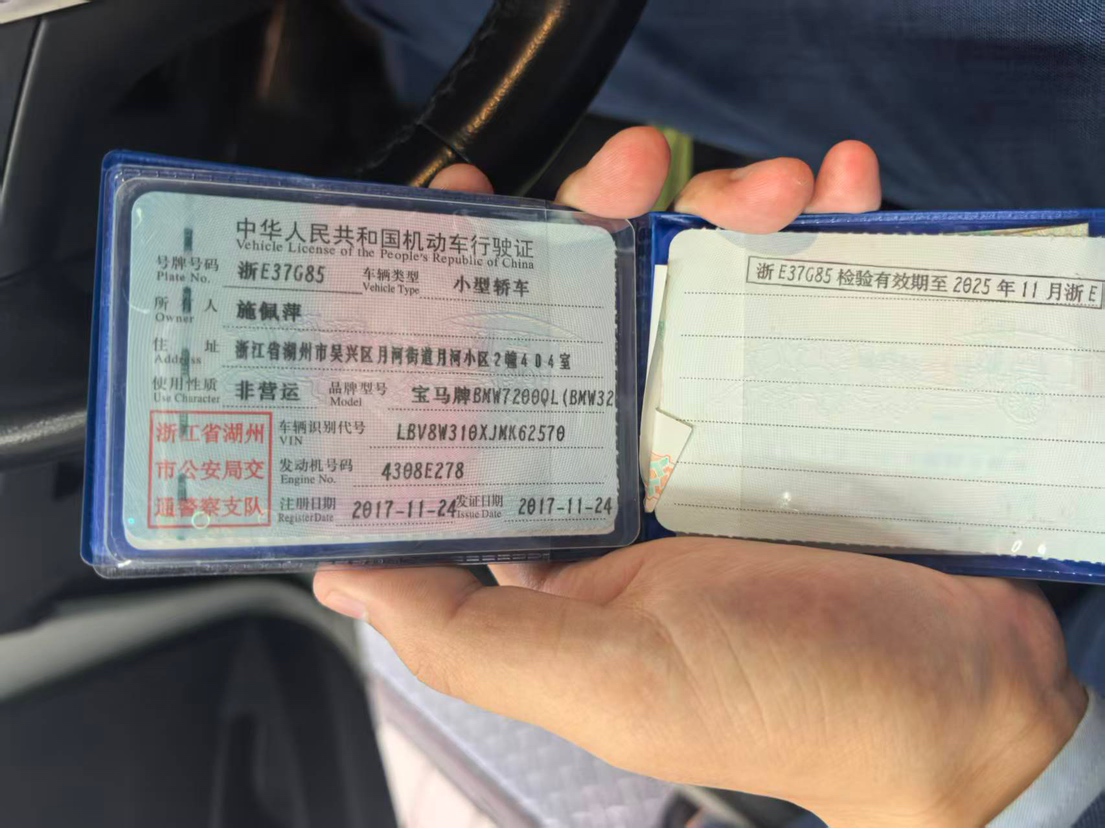 中华人民共和国机动车行驶证
Vehicle License of the People's Republic of China
号牌号码 浙E37G85 车辆类型 小型轿车
Plate No. Vehicle Type
所有人 施佩萍
Owner
住址 浙江省湖州市吴兴区月河街道月河小区2幢404室
Address
使用性质 非营运 品牌型号 宝马牌BMW7200QL(BMW32
Use Character Model
浙江省湖州
市公安局交
通警察支队
车辆识别代号 LBV8W310XJMK62570
VIN
发动机号码 4308E278
Engine No.
注册日期 2017-11-24 发证日期 2017-11-24
Register Date Issue Date
浙E37G85 检验有效期至 2025年11月浙E